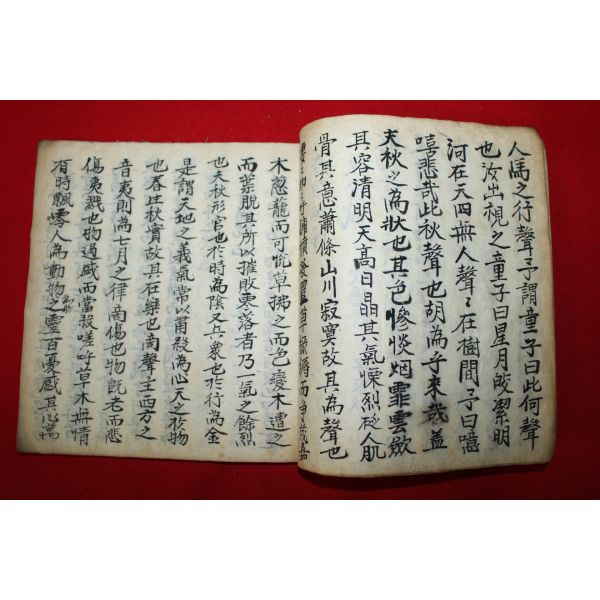 人馬之行聲予謂童子曰此何聲
也汝出視之童子曰星月皎潔明
河在天四無人聲〻在樹間予曰噫
嘻悲哉此秋聲也胡為乎來哉盖
夫秋之為狀也其色慘惔烟霏雲斂
其容清明天高日晶其氣慄烈砭人肌
骨其意蕭條山川寂寞故其為聲也
草綠縟而爭茂嘉
木葱蘢而可悅草拂之而色變木遭之
而葉脫其所以摧敗零落者乃一氣之餘烈
也夫秋形官也於時為陰又兵象也於行為金
是謂天地之義氣常以肅殺為心天之於物
也春生秋實故其在樂也商聲主西方之
音夷則為七月之律商傷也物旣老而悲
傷夷戮也物過盛而當殺嗟呼草木無情
有時飄零人為動物之靈百憂感其心萬